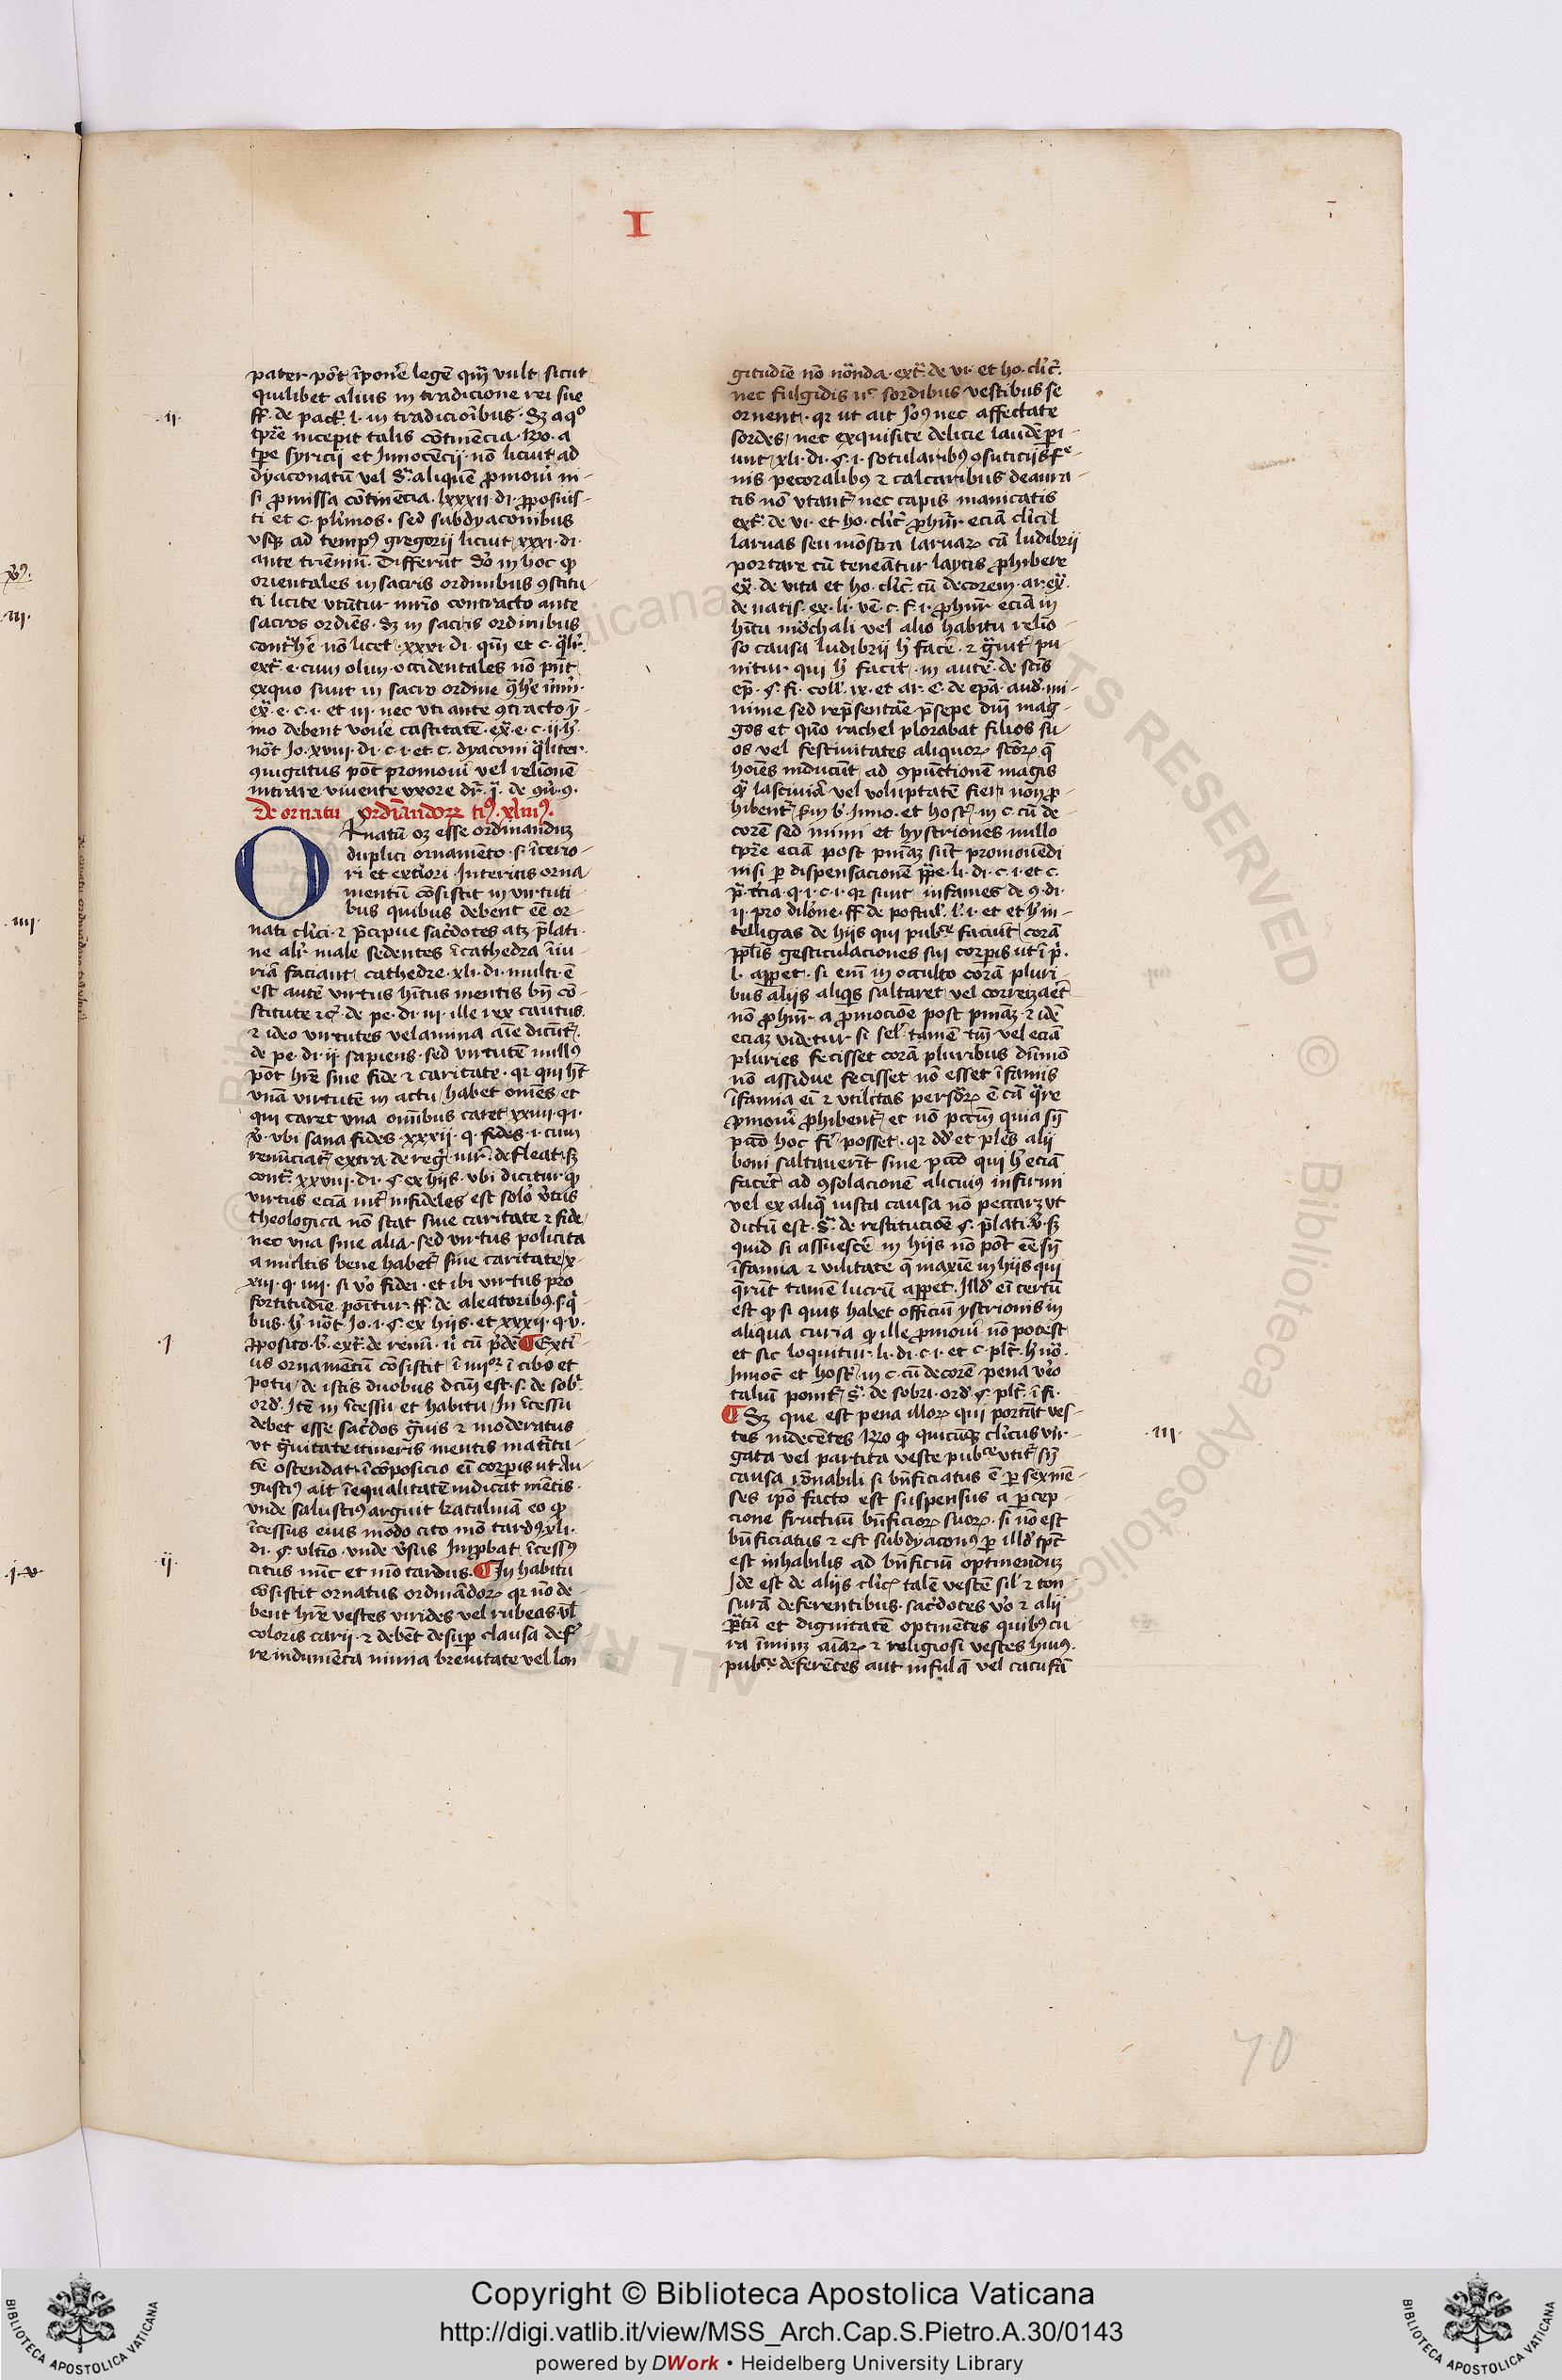 I
pater pōt īpone᷑ legē qm̄ vult sicut
quilibet alius in tradicione rei sue
ff. de pact̄. l. in tradicionibus. Sz a qͦ
tpr̄e incepit talis cōtinēcia. Rͦo. a
tpe syricij et Innocēcij nō licuit ad
dyaconatū vel sͣ. aliquē promoui ni-
si promissa cōtinēcia. lxxxii. di. proposuis-
ti et c. plimos. sed subdyaconibus
usqz ad tempꝰ gregorij licuit xxxi. di.
ante trienniū. Differūt vͦo in hoc qp
orientales in sacris ordinibus ꝯstitu-
ti licite utūtur mr̄io contracto ante
sacros ordies. Sz in sacris ordinibus
cont̄he᷑ nō licet. xxxi. di. qm̄ et c. qͣlr̄.
ext̄. e. cum olim. occidentales nō pn̄t
exquo sunt in sacro ordine
eͯ. e. c. i. et iij. nec uti ante ꝯtracto ỹ-
mo debent voue᷑ castitatē. eͯ. e. c. ij. hͦ.
nōt Jo. xviii. di. c. i. et c. dyaconi qͣliter.
ꝯiugatus pōt promoui vel relionē
intrare vivente uxore dr̄. iͣ. de ꝯū. ꝯ.
De ornatu ordinandoꝝ tiꝰ. xliiiꝰ.
Ornatū oz esse ordinanduz
duplici ornamēto. s. īterio-
ri et exteriori. Interius orna
mentū cōsistit in virtuti
bus quibus debent eē or-
nati clici. ⁊ p̄cipue sacdotes atz p̄lati.
ne alr̄ male sedentes ī cathedra īiu-
riā faciant cathedre. xli. di. multi. ē
est autē virtus hītus mentis bn̄ cō-
stitute ⁊c̄. de pe. di. iii. ille rex cautus.
⁊ ideo virtutes velamina aīe dicūt᷑.
de pe. di. ii. sapiens. sed virtutē nullꝰ
pōt hr̄e sine fide ⁊ caritate. qr qui hēt
unā virtutē in actu habet omēs, et
qui caret una omībus caret xxiiii. q. i.
v̄. ubi sana fides. xxxii. q. fides. i. cum
renūciat᷑ extra. de reḡ. iur̄. defleat. sz
cont̄. xxviii. di. ꝯ. ex hijs. ubi dicitur qp
virtus eciā int᷑ infideles est solo v̄tus
theologica nō stat sine caritate ⁊ fide
nec una sine alia. sed virtus policita
a multis bene habet᷑ sine caritate. x-
xiii. q. iiii. si vͦo fidei. et ibi virtus pro
fortitudīe ponitur. ff. de aleatoribꝰ.
bus. hͦ nōt Jo. i. ꝯ. ex hijs. et xxxii. q. v.
proposito. b̄. ext̄. de renū. n̄ cū p̄dē ¶ Exti-
us ornamentū cōsistit ī iiiioꝛ ī cibo et
potu, de istis duobus dcm̄ est. s. de sob̄.
ord̄. Itē in īcessu et habitu, In īcessu
debet esse sacdos gͣuis ⁊ moderatus
ut gͣuitate itineris mentis maturita-
tē ostendat. īcōposicio eī corꝑis ut Au-
gustiꝰ ait īequalitatē indicat mētis.
unde salustiꝰ arguit katalinā eo qp
īcessus eius modo cito mō tardꝰ xli.
di. ꝯ. ultīo. unde v̄sus Improbat īcessꝰ
citus nūc et mō tardus. ¶ In habitu
cōsistit ornatus ordinādoꝝ qr nō de-
bent hr̄e vestes virides vel rubeas. ul̄
coloris carii. ⁊ debēt desuꝑ clausa def᷑-
re indumēta nimia brevitate vel lon
gitudīe nō nōnda. ext̄. de vi. et ho. clic̄.
nec fulgidis nͨ sordibus vestibus se
ornent. qr ut ait Joꝰ nec affectate
sordes, nec exquisite delicie laudē pri-
unt. xli. di. ꝯ. i. sotularibꝰ ꝯsuticijs fͤ-
nis pecoralibꝰ ⁊ calcaribus deaura-
tis nō utant᷑ nec capis manicatis
ext̄. de vi. et ho. clic̄. prohīt᷑ eciā clicil
larvas seu mōstra larvaꝝ cā ludibrij
portare cū teneātur laycis prohibere
eͯ. de vita et ho. clic̄. cū decorem. ar. eͯ.
de natis. ex. li. vē. c. f. i. prohīt᷑ eciā in
hītu mōchali vel alio habitu relio-
so causa ludibrij hͦ face᷑. ⁊ gͣuit᷑ pu-
nitur qui hͦ facit. in autē. de sctīs
ep̄. ꝯ. fi. coll̄. ix. et ar. C. de ep̄a. aud̄. mi-
nime sed rep̄sentare p̄sepe dn̄i mag-
gos et qūo rachel plorabat filios su-
os vel festivitates aliquoꝝ sctōꝝ q̄
hoīes inducūt ad ꝯpūctionē magis
qͣ lasciviā vel voluptatē fieri non pro-
hibent᷑ scdm b̄. Inno. et host᷑. in c. cū de-
corē sed mimi et hystriones nullo
tpr̄e eciā post pniāz sūt promouēdi
nisi ꝑ dispensacionē ppe. li. di. c. i. et c.
tercia. q. i. c. i. qr sunt infames de ꝯ. di.
ii. pro dilōne. ff. de postul̄. l. i. et et hͦ in-
telligas de hijs qui pubͨe faciūt corā
pplīs gesticulaciones sui corꝑis ut ī pͥ.
l. apꝑet. si eni in occulto corā pluri-
bus alijs aliqͥs saltaret vel correizaret
nō prohīt᷑ a promocōe post pniāz. ⁊ idē
eciaz videtur si sel̄ tamē tm̄ vel eciā
pluries fecisset corā pluribus dūmō
nō assidue fecisset nō esset īfamis
īfamia eī ⁊ vtilitas persōꝝ ē cā qͣre
promoui prohibent᷑ et nō pctm̄ quia sn̄
pctō hoc fi᷑ posset. qr dd̄ et ples alij
boni saltaverīt sine pctō qui hͦ eciā
facet ad ꝯsolacionē alicuiꝰ infirmi
vel ex aliqͣ iusta causa nō peccarz ut
dictū est. sͣ. de restitucōe ꝯ. p̄lati. v̄. sz
quid si assuesce᷑ in hijs nō pōt eē sn̄
īfamia ⁊ vilitate q̄ maxīe in hijs qui
q̄rūt tamē lucrū apꝑet. Illd̄ eī certū
est qp si quis habet officiū ystrionis in
aliqua curia qp ille promoui nō potest
et sic loquitur. li. di. c. i. et c. plr̄. hͦ nō.
Innoc̄. et host᷑. in c. cū decorē. pena vͦo
taliū ponit᷑. sͣ. de sobri. ord̄. ꝯ. plr̄. ī fi.
¶ Sz que est pena illoꝝ qui portāt ves-
tes indecētes Rͦo qp quicūqz clicus vir-
gata vel partita veste pubͨe utit᷑ sn̄
causa rōnabili si bn̄ficiatus ē ꝑ sex mē-
ses ipō facto est suspensus a ꝑcep-
cione fructuū bn̄ficioꝝ suoꝝ. si nō est
bn̄ficiatus ⁊ est subdyaconꝰ ꝑ illd̄ tpc̄
est inhabilis ad bn̄ficiū optinenduz
Idē est de alijs clicꝭ talē vestē sil̄ ⁊ ton-
surā deferentibus. sacdotes vͦo ⁊ alij
ꝑsōtū et dignitatē optinētes quibꝰ cu-
ra īminz aīaꝝ ⁊ religiosi vestes huiꝰ.
pubͨe deferētes aut infulā vel cacufā
ii.
iiii
.i
ii.
iii.
70
Copyright © Biblioteca Apostolica Vaticana
http://digi.vatlib.it/view/MSS_Arch.Cap.S.Pietro.A.30/0143
powered by DWork • Heidelberg University Library
BIBLIOTECA APOSTOLICA VATICANA
BIBLIOTECA APOSTOLICA VATICANA